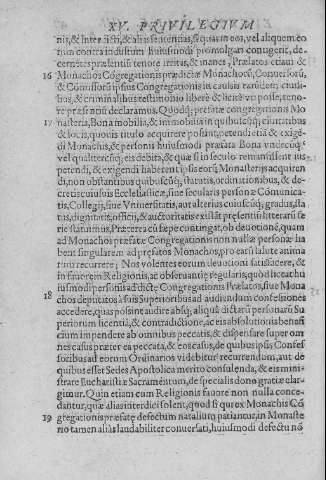 XV. PRIVILEGIVM
nis, & Interdicti, & alias sententias, si quas in eos, vel aliquem eo
rum contra indultum huiusmodi promulgari contigerit, de-
cernētes præsentiū tenore irritas, & inanes, Prælatos etiam &
16 Monachos Cōgregationis prædictæ Monachorū, Conuersorū,
& Cōmissorū ipsius Congregationis in causis earundem ciuili-
bus, & criminalibus testimonio liberè & licitè vti posse, teno-
re præsentiū declaramus. Quodq; præfatæ congregationis Mo
17 nasteria, Bona mobilia, & immobilia in quibuscūq; ciuitatibus
& locis, quouis titulo acquirere possint, petendi etiā & exigē-
di Monachis, & personis huiusmodi præfata Bona vndecūq;
vel qualitercūq; eis debita, & quæ si in seculo remansissent ius
petendi, & exigendi haberent ipse eorū Monasterijs acquiren
di, non obstantibus quibuscūq; statutis, ordinationibus, & de-
cretis cuiusuis Ecclesiasticæ, siue secularis personæ Cōmunica-
tis, Collegij, siue Vniuersitatis, aut alterius cuiuscūq; gradus, sta
tus, dignitatis, officij, & auctoritatis existāt præsentiū litterarū se
rie statuimus, Præterea cū sæpe contingat, ob deuotionē, quam
ad Monachos præfatæ Congregationis non nullæ personæ ha
bent singularem ad præfatos Monachos, pro earū salute anima
rum recurrere; Nos volentes eorum deuotioni satisfacere, &
in fauorem Religionis, ac obseruantiæ regularis, quod liceat hu
iusmodi personis ad dictæ Congregationis Prælatos, siue Mona
18 chos deputatos à suis Superioribus ad audiendum confessiones
accedere, quas possint audire absq; aliqua dictarū personarū Su
periorum licentia, & contradictione, ac eis absolutionis benefi
cium impendere ab omnibus peccatis, & dispensare super om
nes casus præter ea peccata, & eos casus, de quibus ipsis Confes
soribus ad eorum Ordinarios videbitur recurrendum, aut de
quibus esset Sedes Apostolica merito consulenda, & eis mini-
strare Eucharistiæ Sacramentum, de speciali dono gratiæ elar-
gimur. Quin etiam cum Religionis fauore non nulla conce-
dantur, quæ alias interdici solent, quod si qui ex Monachis Cō
19 gregationis præfatæ defectum natalium patiantur, in Monaste
rio tamen alias laudabiliter conuersati, huiusmodi defectu nō